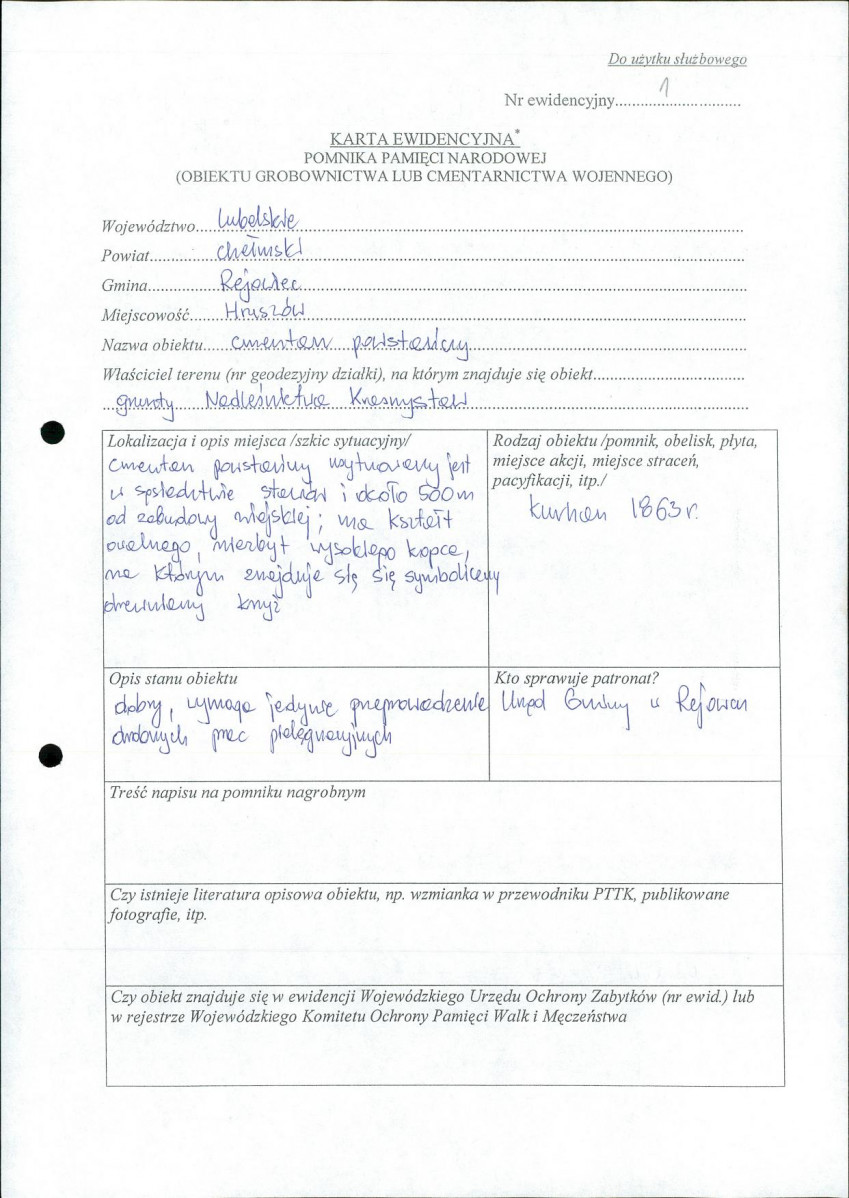 Do użytku służbowego
Nr ewidencyjny....1....
KARTA EWIDENCYJNA*
POMNIKA PAMIĘCI NARODOWEJ
(OBIEKTU GROBOWNICTWA LUB CMENTARNICTWA WOJENNEGO)
Województwo....lubelskie
Powiat....chełmski
Gmina....Rejowiec
Miejscowość....Hruszów
Nazwa obiektu....cmentarz powstańczy
Właściciel terenu (nr geodezyjny działki), na którym znajduje się obiekt....
grunty Nadleśnictwa Krasnystaw
Lokalizacja i opis miejsca /szkic sytuacyjny/
cmentarz powstańczy usytuowany jest
w sąsiedztwie stawów i około 500 m
od zabudowy wiejskiej; ma kształt
owalnego, niezbyt wysokiego kopca,
na którym znajduje się się symboliczny
drewniany krzyż
Rodzaj obiektu /pomnik, obelisk, płyta,
miejsce akcji, miejsce straceń,
pacyfikacji, itp./
kurhan 1863 r.
Opis stanu obiektu
dobry, wymaga jedynie przeprowadzenie
drobnych prac pielęgnacyjnych
Kto sprawuje patronat?
Urząd Gminy w Rejowcu
Treść napisu na pomniku nagrobnym
Czy istnieje literatura opisowa obiektu, np. wzmianka w przewodniku PTTK, publikowane
fotografie, itp.
Czy obiekt znajduje się w ewidencji Wojewódzkiego Urzędu Ochrony Zabytków (nr ewid.) lub
w rejestrze Wojewódzkiego Komitetu Ochrony Pamięci Walk i Męczeństwa